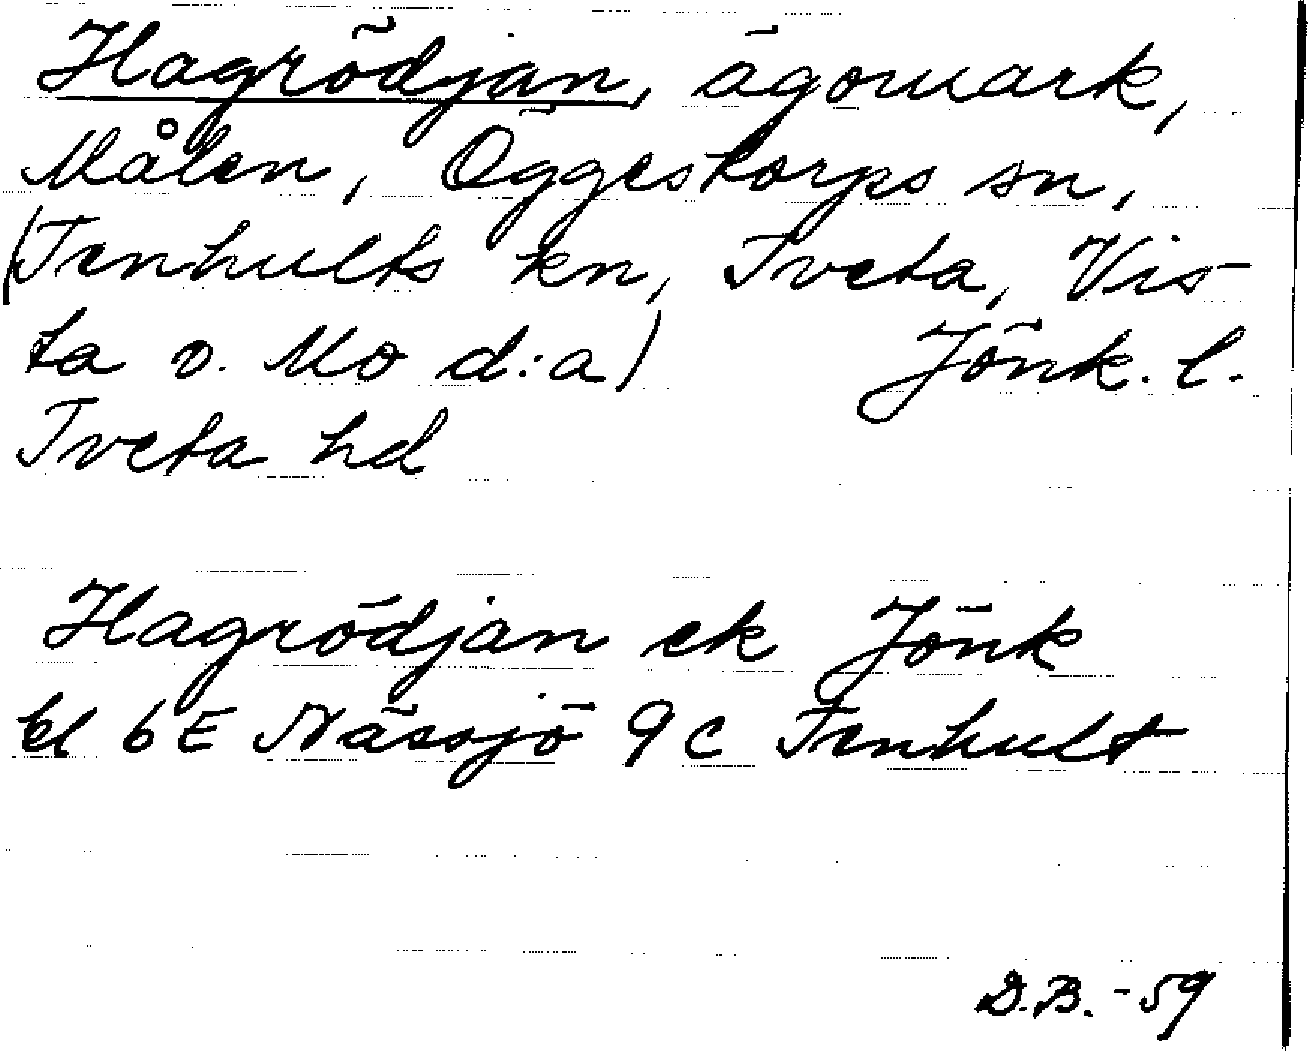 Hagrödjan, ägomark,
Målen, Öggestorps sn,
(Tenhults kn, Tveta, Vis-
ta o. Mo d:a) Jönk. l.
Tveta hd
Hagrödjan ek Jönk
bl 6E Nässjö 9c Tenhult
D.B. -59